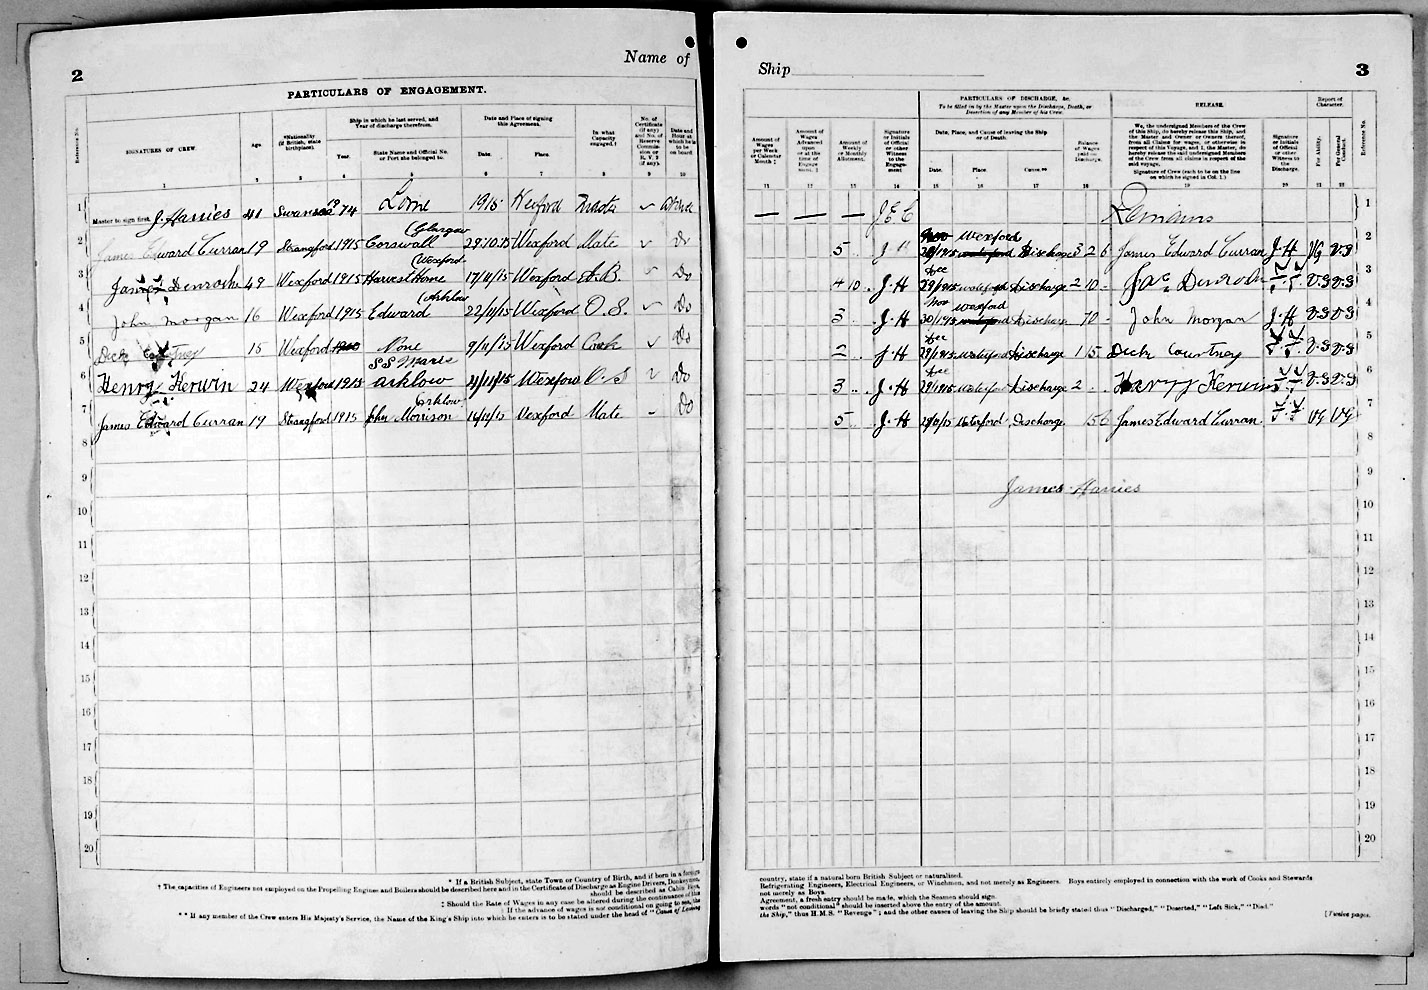 2
Name of
PARTICULARS OF ENGAGEMENT.
Reference No.
SIGNATURES OF CREW.
Age.
*Nationality
(if British, state
birthplace).
Ship in which he last served, and
Year of discharge therefrom.
Year.
State Name and Official No.
or Port she belonged to.
Date and Place of signing
this Agreement.
Date.
Place.
In what
Capacity
engaged.†
No. of
Certificate
(if any)
and No. of
Reserve
Commis-
sion or
R.V. 2
(if any).
Date and
Hour at
which he is
to be
on board
1 2 3 4 5 6 7 8 9 10
1 Master to sign first. J. Harries 41 Swansea 74 Lorne 1915 Wexford Master
2 James Edward Curran 19 Strangford 1915 Corswall (Glasgow 29.10.15 Wexford Mate Do
3 James Denroche 49 Wexford 1915 Harvest Home (Wexford 17/11/15 Wexford A.B. Do
4 John Morgan 16 Wexford 1915 Edward (Arklow 22/11/15 Wexford O.S. Do
5 Dick Courtney 15 Wexford None 9/11/15 Wexford Cook Do
6 Henry Kerwin 24 Wexford 1915 Arklow Wexford O S Do
7 James Edward Curran 19 Strangford 1915 John Morrison Arklow Wexford Mate Do
8
9
10
11
12
13
14
15
16
17
18
19
20
* If a British Subject, state Town or Country of Birth, and if born in a foreign
† The capacities of Engineers not employed on the Propelling Engines and Boilers should be described here and in the Certificate of Discharge as Engine Drivers, Donkeymen,
should be described as Cabin Boys,
‡ Should the Rate of Wages in any case be altered during the continuance of this
§ If the advance of wages is not conditional on going to sea, the
** If any member of the Crew enters His Majesty's Service, the Name of the King's Ship into which he enters is to be stated under the head of "Cause of Leaving
Ship
3
Amount of
Wages
per Week
or Calendar
Month ‡
Amount of
Wages
Advanced
upon
or at the
time of
Engage-
ment. §
Amount of
Weekly
or Monthly
Allotment.
Signature
or Initials
of Official
or other
Witness
to the
Engage-
ment
PARTICULARS OF DISCHARGE, &c.
To be filled in by the Master upon the Discharge, Death, or
Desertion of any Member of his Crew.
Date, Place, and Cause of leaving the Ship
or of Death.
Date.
Place.
Cause.**
Balance
of Wages
paid on
Discharge.
RELEASE.
We, the undersigned Members of the Crew
of this Ship, do hereby release this Ship, and
the Master and Owner or Owners thereof,
from all Claims for wages, or otherwise in
respect of this Voyage, and I, the Master, do
hereby release the said undersigned Members
of the Crew from all claims in respect of the
said voyage.
Signature of Crew (each to be on the line
on which he signed in Col. 1.)
Signature
or Initials
of Official
or other
Witness to
the
Discharge.
Report of
Character.
For Ability.
For General
Conduct.
Reference No.
11 12 13 14 15 16 17 18 19 20 21 22
— — — J.E.C Remains 1
5 J H Wexford Discharge 3 2 6 James Edward Curran J.H VG V.G 2
4 10 J.H Discharge 2 10 - Jas Denroche V.G V.G 3
3 J.H Wexford Discharge 10 - John Morgan J.H V.G V.G 4
2 J.H Waterford Discharge 1 15 Dick Courtney V.G V.G 5
3 J.H Waterford Discharge 2 Harry Kerwin V.G V.G 6
5 J.H Waterford Discharge James Edward Curran VG VG 7
8
James Harries
9
10
11
12
13
14
15
16
17
18
19
20
country, state if a natural born British Subject or naturalized.
Refrigerating Engineers, Electrical Engineers, or Winchmen, and not merely as Engineers. Boys entirely employed in connection with the work of Cooks and Stewards
not merely as Boys.
Agreement, a fresh entry should be made, which the Seamen should sign.
words "not conditional" should be inserted above the entry of the amount.
the Ship," thus H.M.S. "Revenge"; and the other causes of leaving the Ship should be briefly stated thus "Discharged," "Deserted," "Left Sick," "Died."
[Twelve pages.